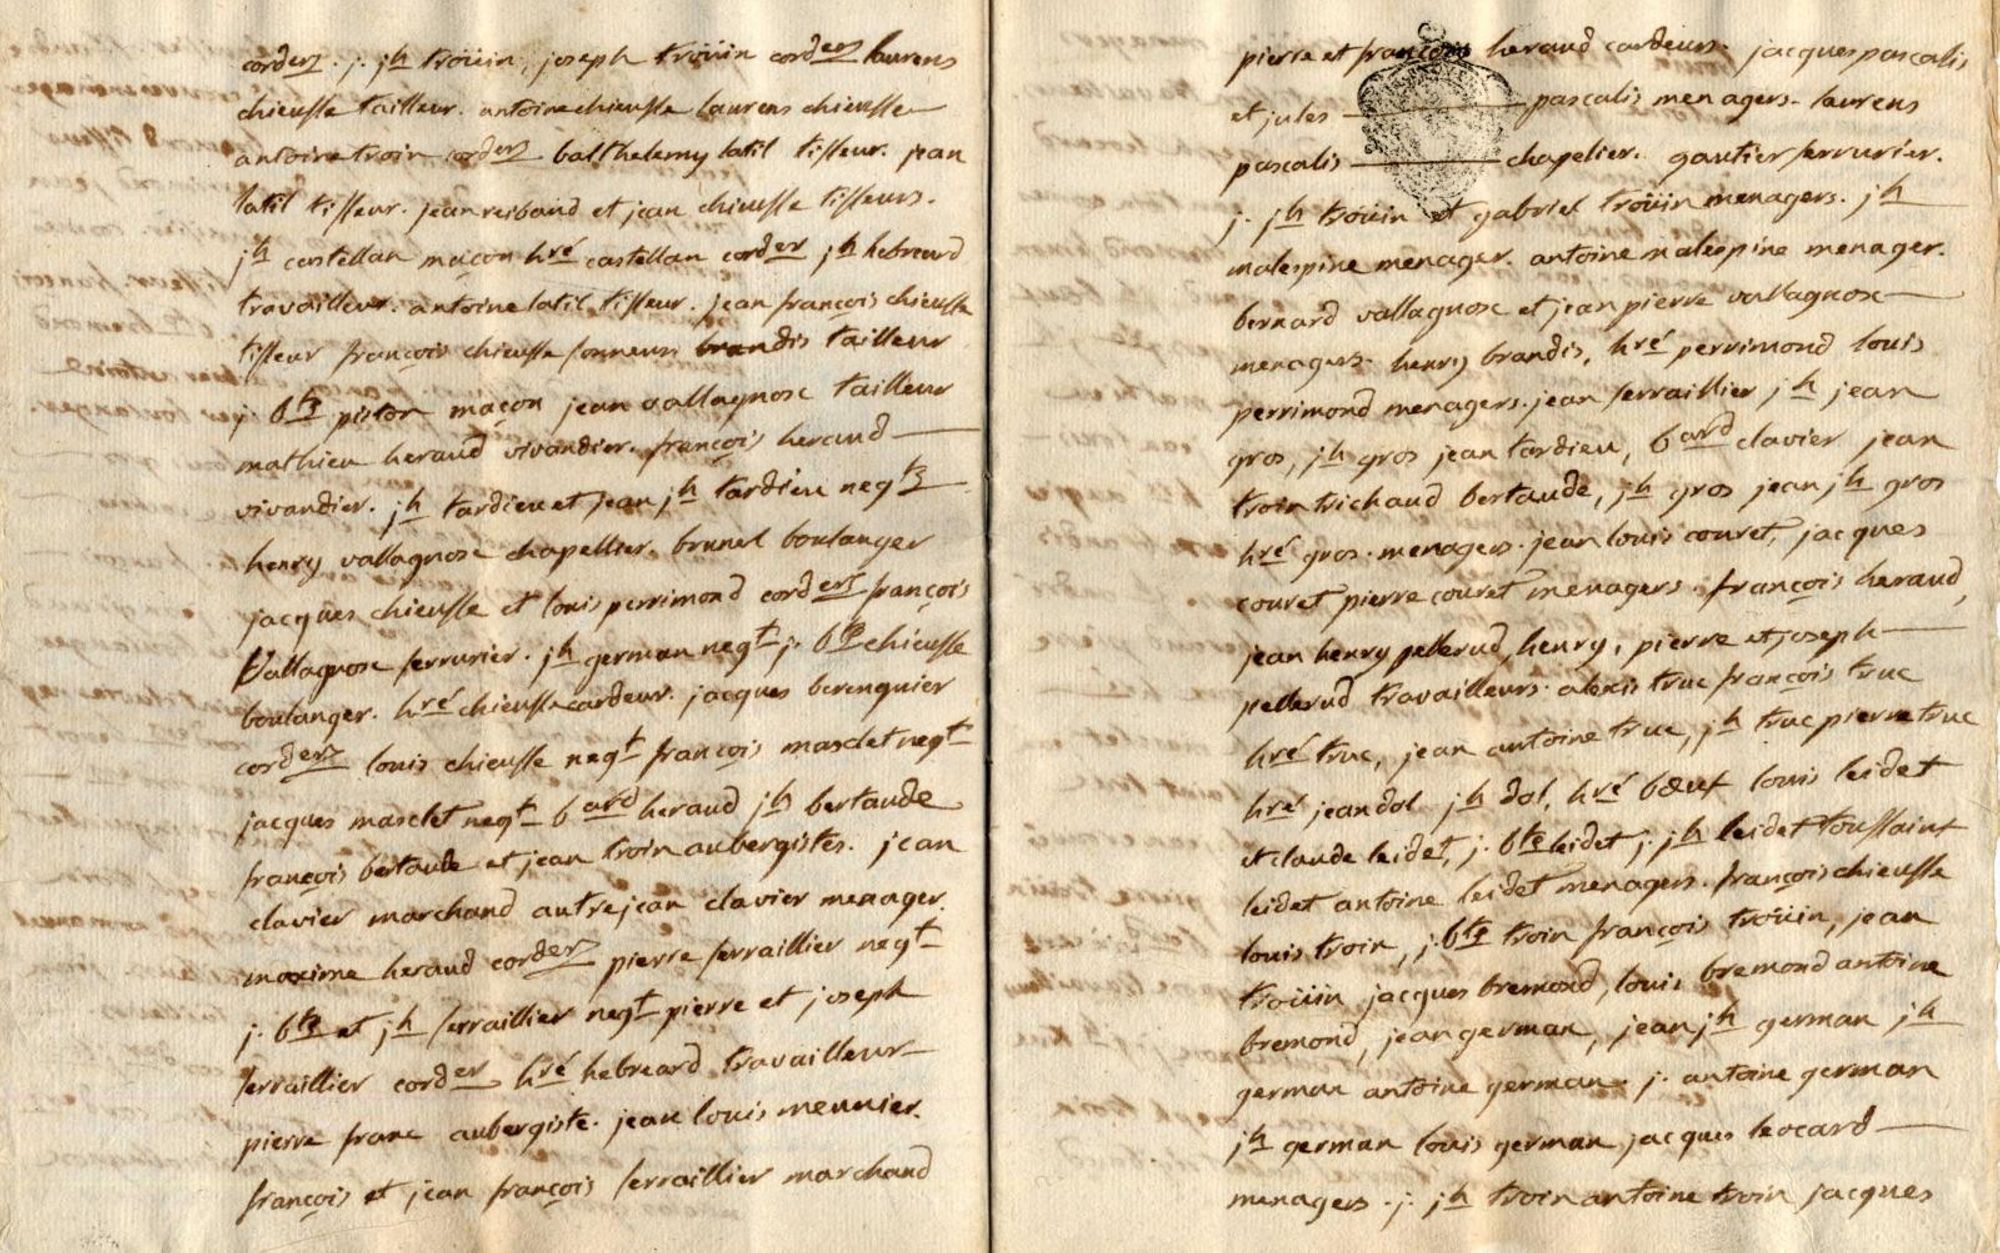 corders. j. jh troüin, joseph troüin corders laurens
chieusse tailleur. antoine chieusse laurens chieusse
antoine troin corders balthelemy latil tisseur. jean
latil tisseur. jean reibaud et jean chieusse tisseurs.
jh castellan maçon hré castellan corder jh hebreard
travailleur. antoine latil tisseur. jean françois chieusse
tisseur françois chieusse sonneur brandis tailleur
j bte pistor maçon jean vallagnosc tailleur
mathieu heraud vivandier. françois heraud
vivandier. jh tardieu et jean jh tardieu negts
henry vallagnosc chapellier. brunel boulanger
jacques chieusse et louis perrimond corders françois
Vallagnosc serrurier. jh german negt j. bte chieusse
boulanger. hré chieusse cardeur. jacques berenguier
corders louis chieusse negt françois masclet negt
jacques masclet negt bard heraud jh bertaude
françois bertaude et jean troin aubergistes. jean
clavier marchand autre jean clavier menager.
maxime heraud corders pierre serraillier negt
j. bte et jh serraillier negt pierre et joseph
serraillier corder hré hebreard travailleur
pierre franc aubergiste. jean louis meunier.
françois et jean françois serraillier marchand
pierre et françois heraud cardeurs. jacques pascalis
et jules pascalis menagers. laurens
pascalis chapelier. gautier serrurier.
j. jh troüin et gabriel troüin menagers. jh
malespine menager. antoine malespine menager.
bernard vallagnosc et jean pierre vallagnosc
menagers. henry brandis, hré perrimond louis
perrimond menagers. jean serraillier jh jean
gros, jh gros jean tardieu, bard clavier jean
troin trichaud bertaude, jh gros jean jh gros
hré gros. menagers. jean louis couret, jacques
couret pierre couret menagers. françois heraud,
jean henry pellerud, henry, pierre et joseph
pellerud travailleurs. alexis truc françois truc
hré truc, jean antoine truc, jh truc pierre truc
hré jean dol jh dol, hré bœuf louis leidet
et claude leidet, j. bte leidet j. jh leidet toussaint
leidet antoine leidet menagers. françois chieusse
louis troin, j. bte troin françois troüin, jean
troüin jacques bremond, louis bremond antoine
bremond, jean german, jean jh german jh
german antoine german. j. antoine german
jh german louis german jacques leocard
menagers. j. jh troin antoine troin jacques